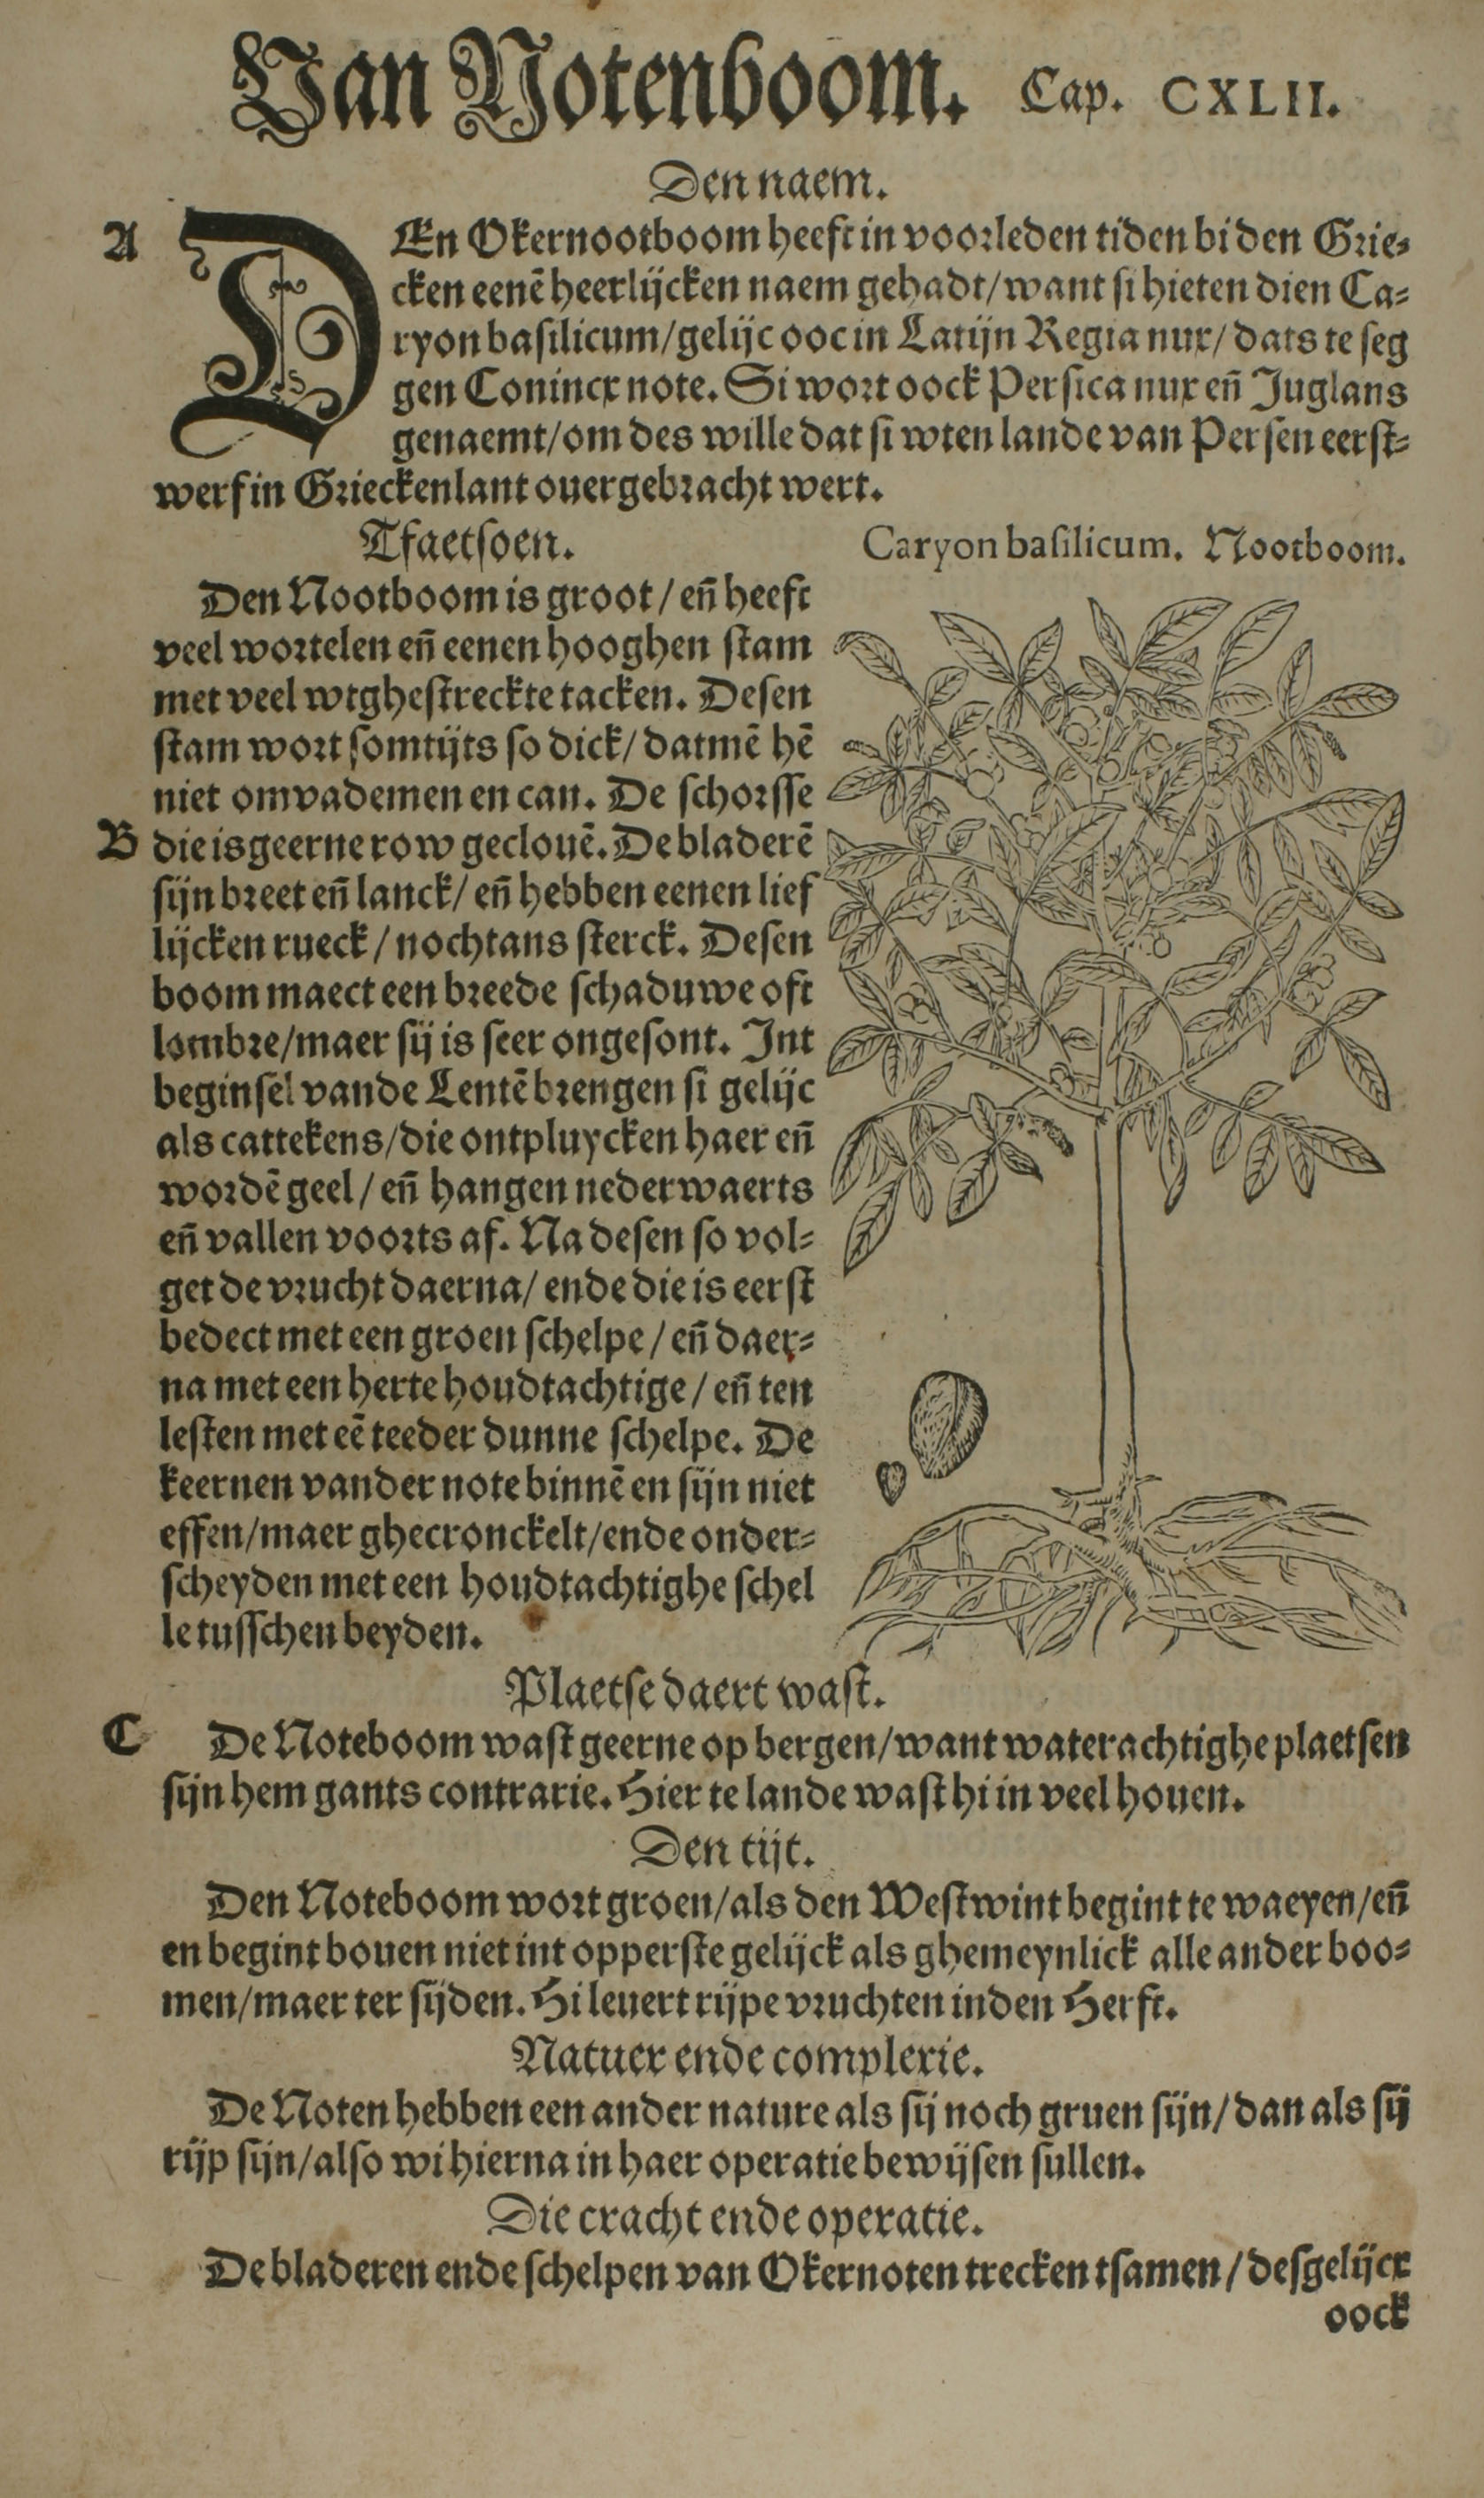 Van Notenboom. Cap. CXLII.
Den naem.
A
DEn Okernootboom heeft in voorleden tiden bi den Grie-
cken eenē heerlijcken naem gehadt/want si hieten dien Ca-
ryon basilicum/gelijc ooc in Latijn Regia nux/dats te seg
gen Conincx note. Si wort oock Persica nux eñ Juglans
genaemt/om des wille dat si wten lande van Persen eerst-
werf in Grieckenlant ouergebracht wert.
Tfaetsoen.
Den Nootboom is groot/eñ heeft
veel wortelen eñ eenen hooghen stam
met veel wtghestreckte tacken. Desen
stam wort somtijts so dick/datmē hē
niet omvademen en can. De schorsse
B
die is geerne row geclouē. De bladerē
sijn breet eñ lanck/eñ hebben eenen lief
lijcken rueck/nochtans sterck. Desen
boom maect een breede schaduwe oft
lombre/maer sij is seer ongesont. Int
beginsel vande Lentē brengen si gelijc
als cattekens/die ontpluycken haer eñ
wordē geel/eñ hangen nederwaerts
eñ vallen voorts af. Na desen so vol-
get de vrucht daerna/ende die is eerst
bedect met een groen schelpe/eñ daer-
na met een herte houdtachtige/eñ ten
lesten met eē teeder dunne schelpe. De
keernen vander note binnē en sijn niet
effen/maer ghecronckelt/ende onder-
scheyden met een houdtachtighe schel
le tusschen beyden.
Caryon basilicum. Nootboom.
Plaetse daert wast.
C
De Noteboom wast geerne op bergen/want waterachtighe plaetsen
sijn hem gants contrarie. Hier te lande wast hi in veel houen.
Den tijt.
Den Noteboom wort groen/als den Westwint begint te waeyen/eñ
en begint bouen niet int opperste gelijck als ghemeynlick alle ander boo-
men/maer ter sijden. Hi leuert rijpe vruchten inden Herfst.
Natuer ende complexie.
De Noten hebben een ander nature als sij noch gruen sijn/dan als sij
rijp sijn/also wi hierna in haer operatie bewijsen sullen.
Die cracht ende operatie.
De bladeren ende schelpen van Okernoten trecken tsamen/desgelijcx
oock